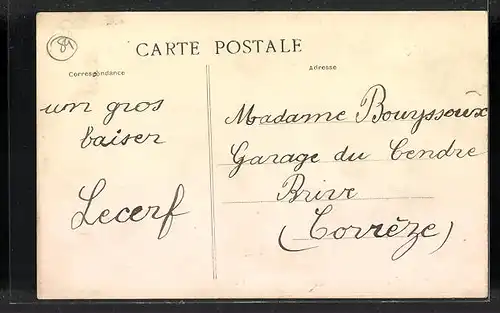 84
CARTE POSTALE
Correspondance
Adresse
um gros
baiser
Lecerf
Madame Bouyssoux
Garage du Cendre
Brive
(Corrèze)